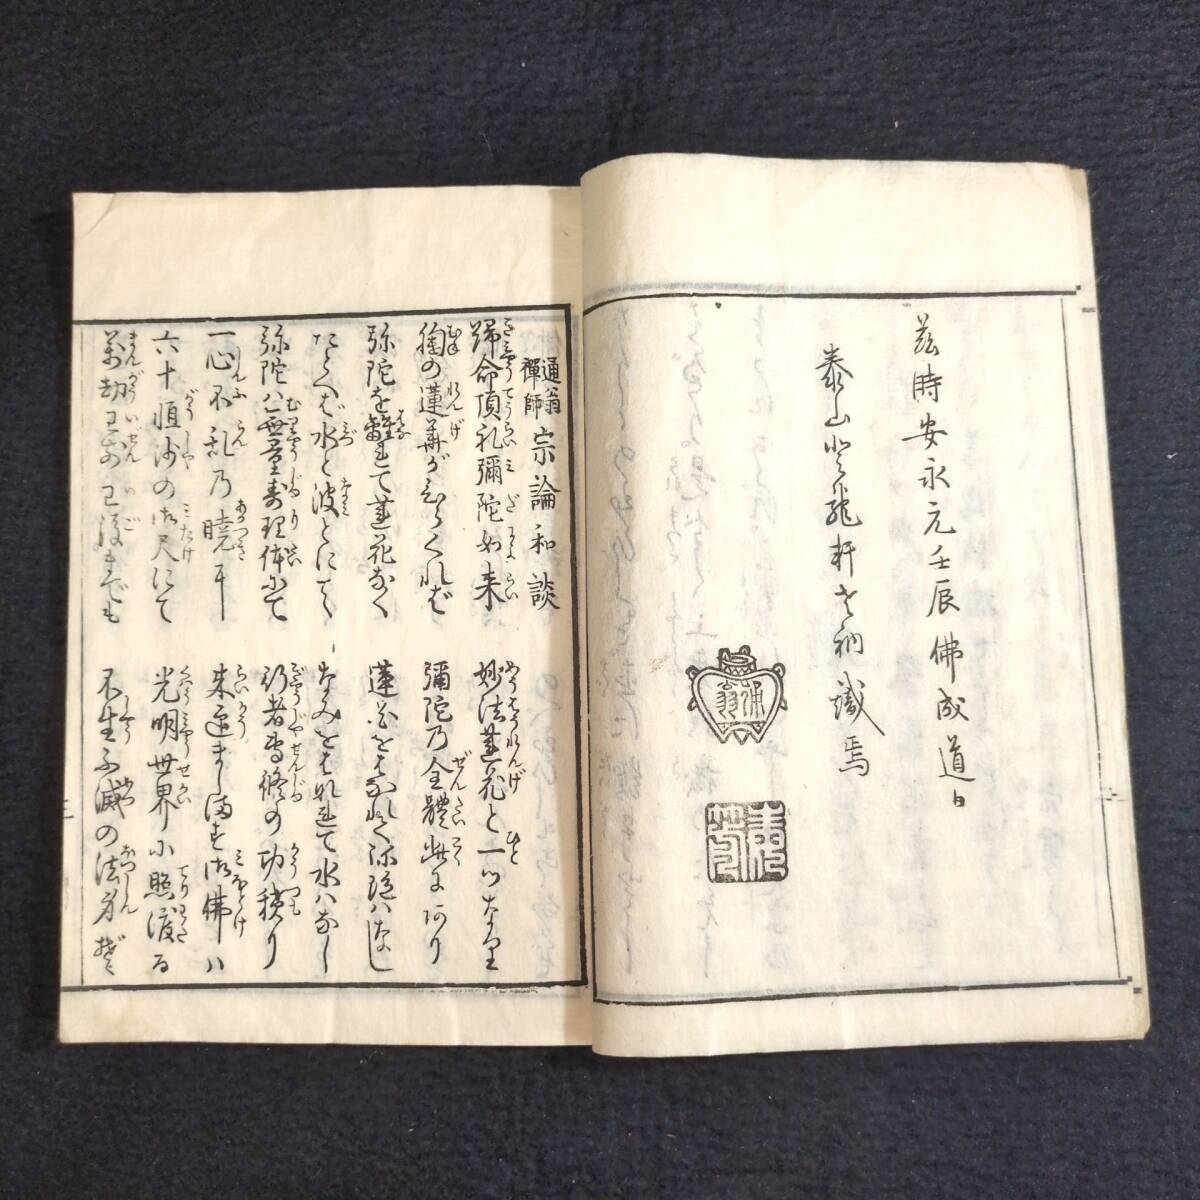 茲時安永元壬辰佛成道日
泰山
軒老衲識焉
通翁
禅師
宗論和談
帰命頂礼彌陀如来
妙法蓮花と一つなり
胸の蓮華がひらくれば
彌陀乃全體此にあり
弥陀を離れて蓮花なく
蓮花をはなれて弥陀ハなし
たとへば水と波とにて
なみをはなれて水ハなし
弥陀ハ無量寿理体にて
行者専修の功積り
一心不乱乃暁に
来迎まします御佛ハ
六十恒沙の御尺にて
光明世界小照渡る
萬劫已前已後までも
不生不滅の法身ぞ